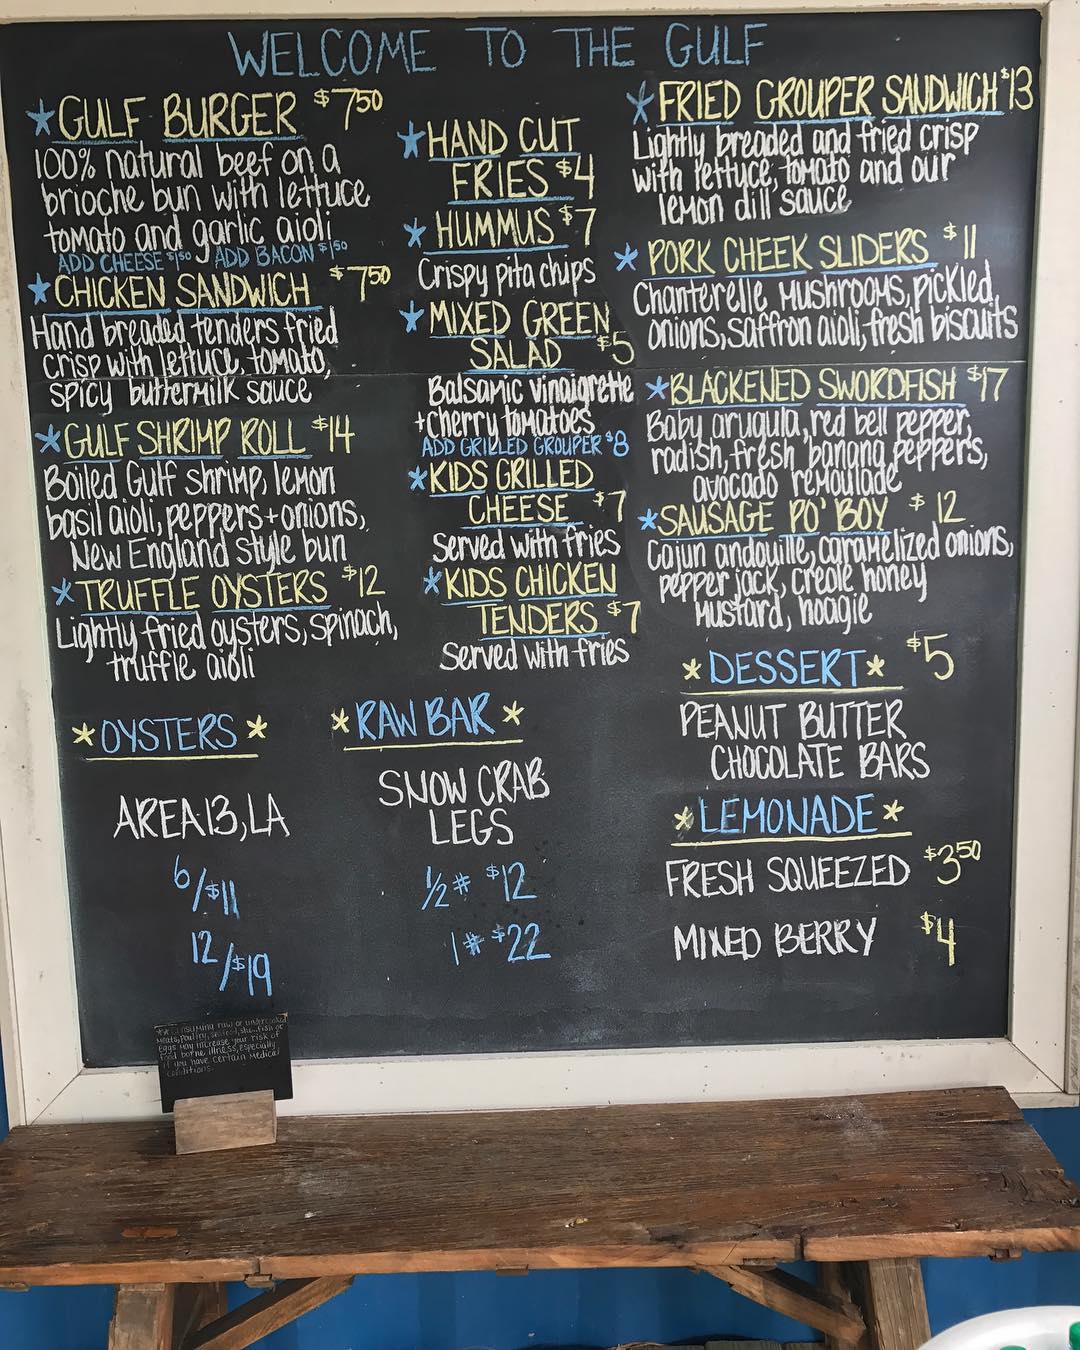 WELCOME TO THE GULF
GULF BURGER $7.50
100% natural beef on a
brioche bun with lettuce
tomato and garlic aioli
ADD CHEESE $1.50 ADD BACON $1.50
CHICKEN SANDWICH $7.50
Hand breaded tenders fried
crisp with lettuce, tomato,
spicy buttermilk sauce
GULF SHRIMP ROLL $14
Boiled Gulf shrimp, lemon
basil aioli, peppers + onions,
New England style bun
TRUFFLE OYSTERS $12
Lightly fried oysters, spinach,
truffle aioli
HAND CUT
FRIES $4
HUMMUS $7
Crispy pita chips
MIXED GREEN
SALAD $5
Balsamic vinaigrette
+ cherry tomatoes
ADD GRILLED GROUPER $8
KIDS GRILLED
CHEESE $7
Served with fries
KIDS CHICKEN
TENDERS $7
Served with fries
FRIED GROUPER SANDWICH $13
Lightly breaded and fried crisp
with lettuce, tomato and our
lemon dill sauce
PORK CHEEK SLIDERS $11
Chanterelle Mushrooms, pickled
onions, saffron aioli, fresh biscuits
BLACKENED SWORDFISH $17
Baby arugula, red bell pepper,
radish, fresh banana peppers,
avocado remoulade
SAUSAGE PO' BOY $12
Cajun andouille, caramelized onions,
pepper jack, creole honey
Mustard, hoagie
*OYSTERS*
AREA 13, LA
6/$11
12/$19
*RAW BAR*
SNOW CRAB
LEGS
1/2 # $12
1 # $22
*DESSERT* $5
PEANUT BUTTER
CHOCOLATE BARS
*LEMONADE*
FRESH SQUEEZED $3.50
MIXED BERRY $4
raw or undercooked
Meats, poultry, seafood, fish or
Eggs May increase your risk of
food borne illness, especially
if you have certain Medical
conditions.